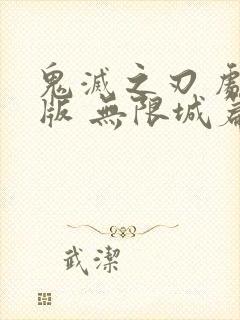 鬼滅之刃 劇
版 無限城篇
武潔